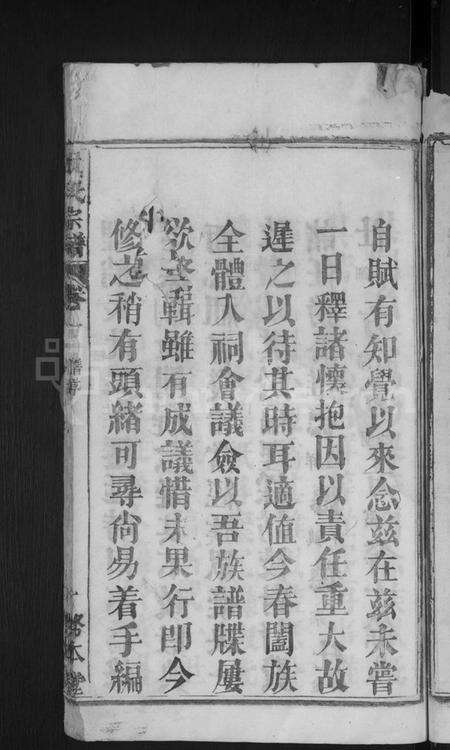 自賦有知覺以來念茲在茲未嘗
一日釋諸懷抱因以責任重大故
遲之以待其時耳適值今春闔族
全體人祠會議僉以吾族譜牒屢
欲 輯雖有成議惜未果行卽今
修之稍有頭緒可尋尙易着手編
氏宗譜
務本堂